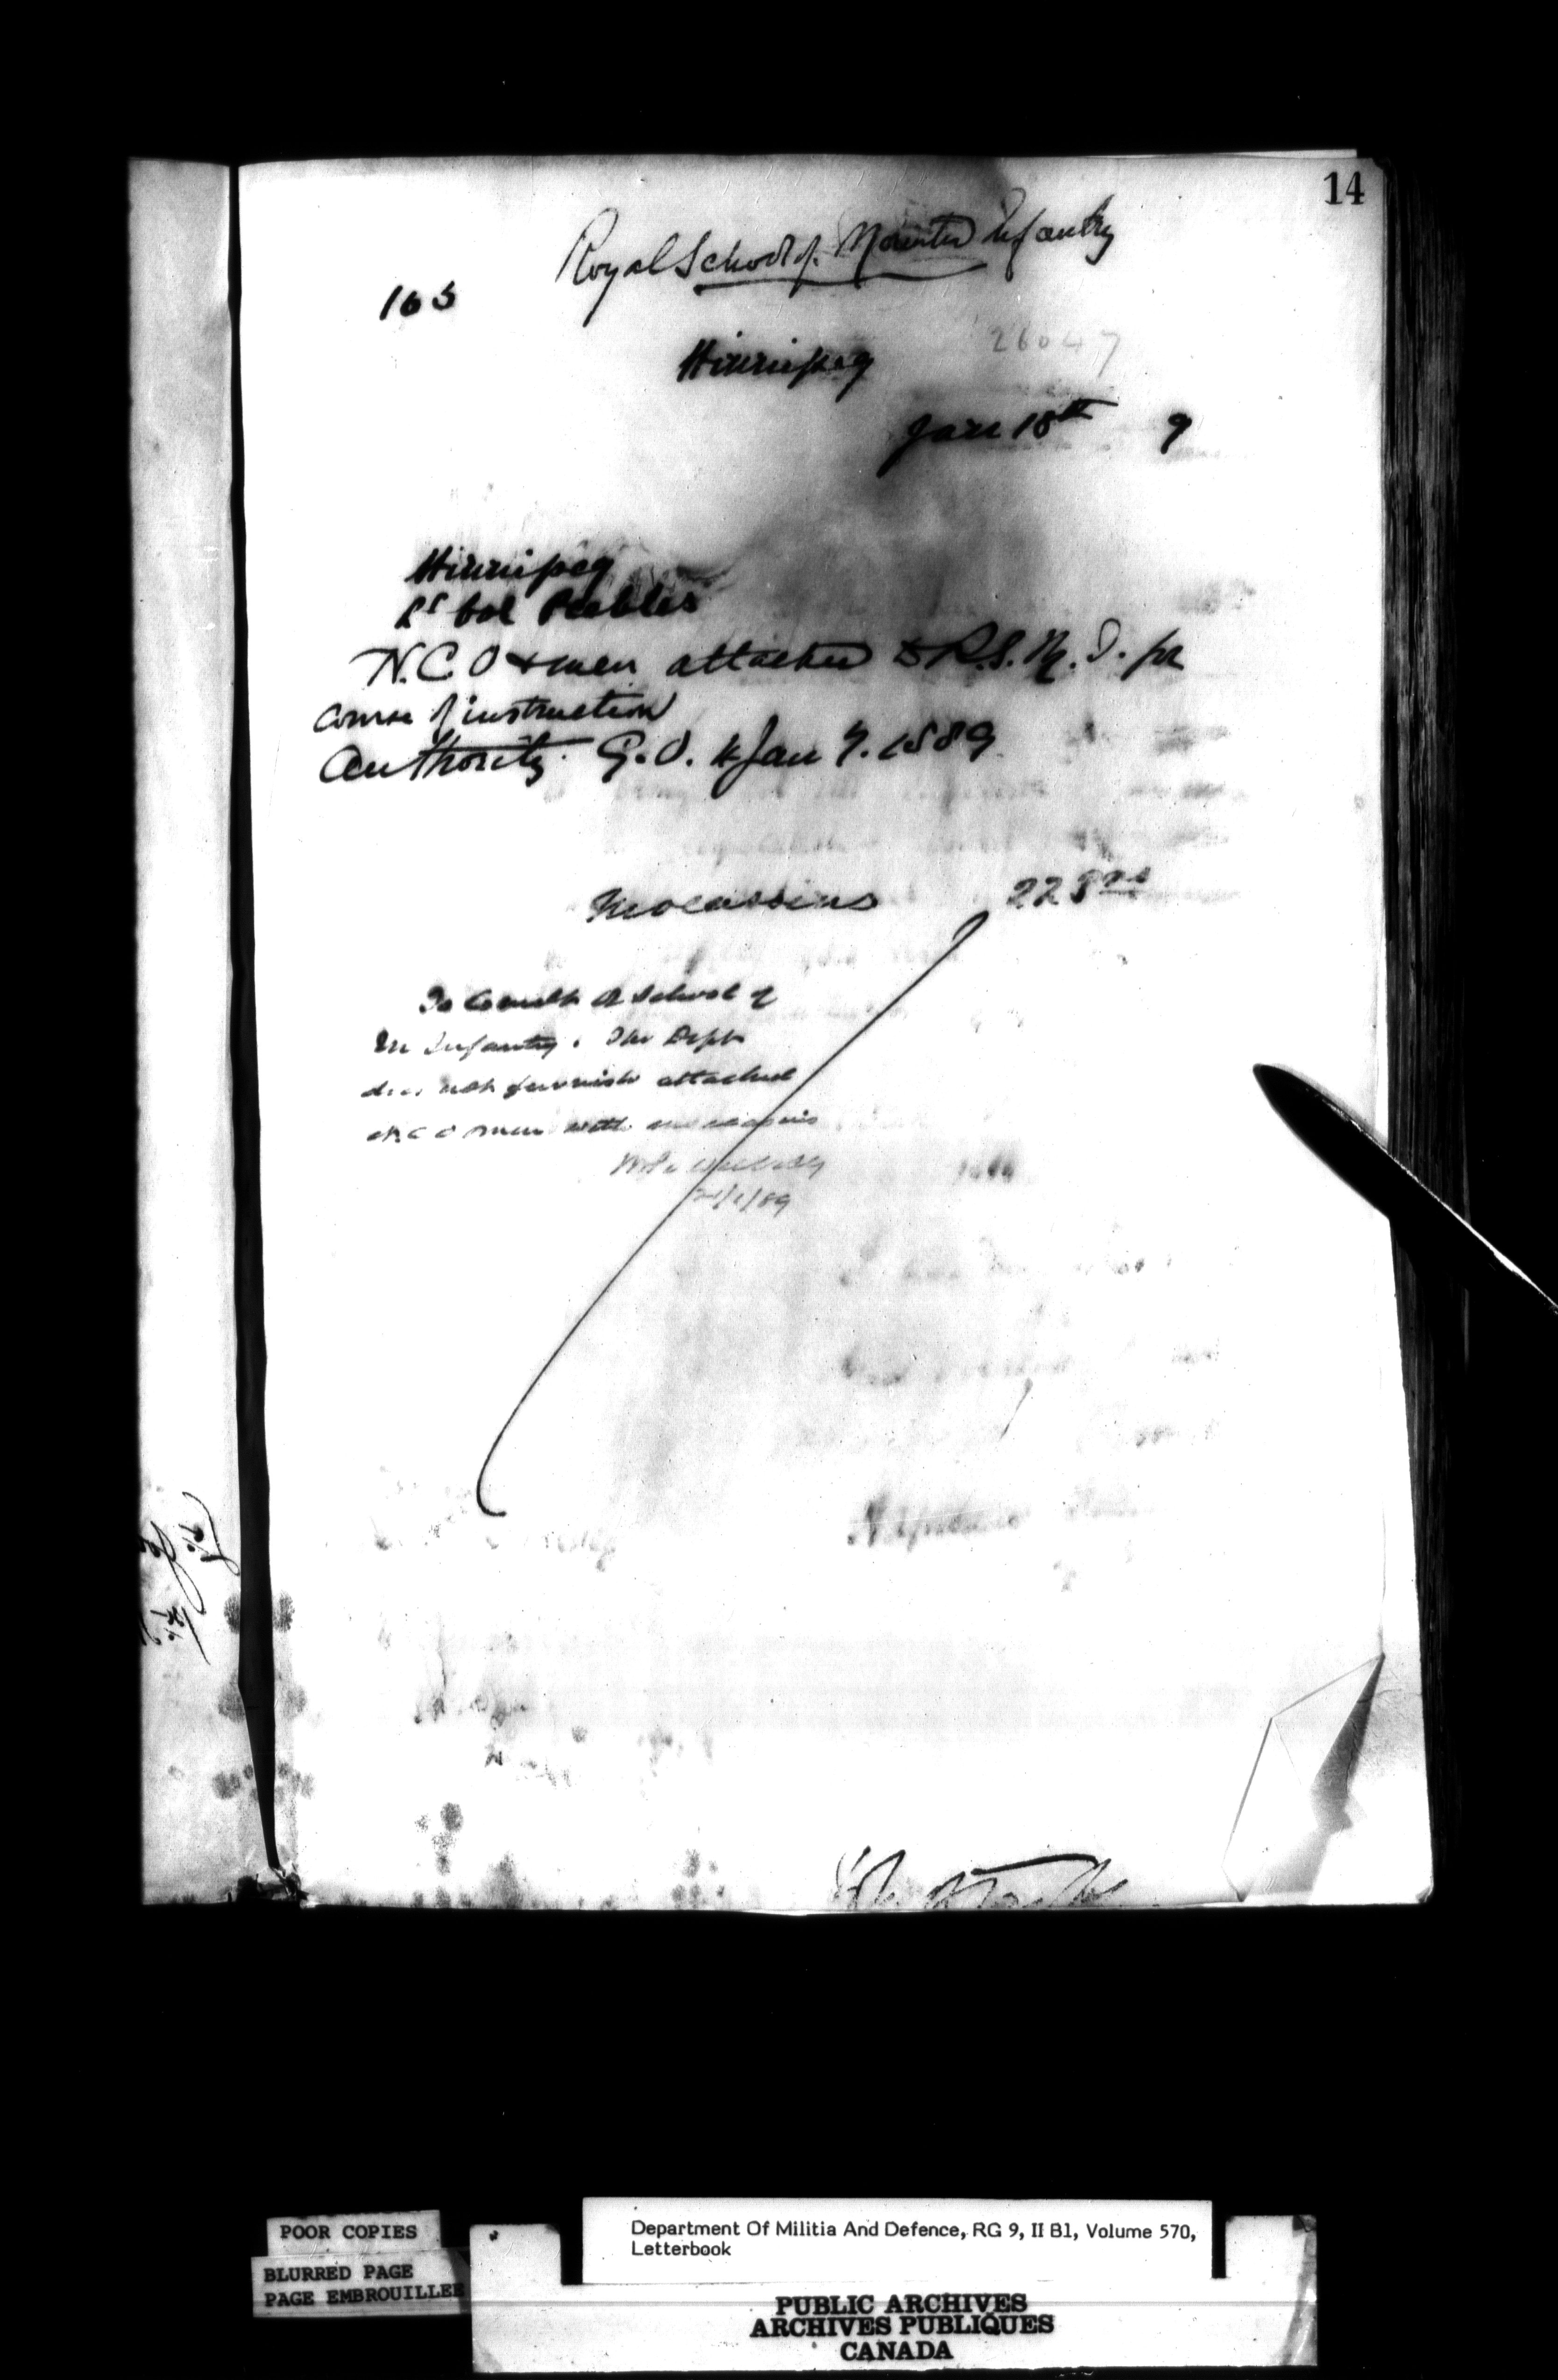 14
Royal School of Mounted Infantry
165
26047
Winnipeg
Jan 18th 9
Winnipeg
Lt Col Peebles
N.C.O & men attached to R.S.M.I. for
course of instruction
Authority G.O. 4 Jan 9. 1889
Mocassins 22 prs
To Comdt R School of
M Infantry. The Dept
does not furnish attached
N C O men with mocassins
21/1/89
POOR COPIES
BLURRED PAGE
PAGE EMBROUILLEE
Department Of Militia And Defence, RG 9, II B1, Volume 570,
Letterbook
PUBLIC ARCHIVES
ARCHIVES PUBLIQUES
CANADA